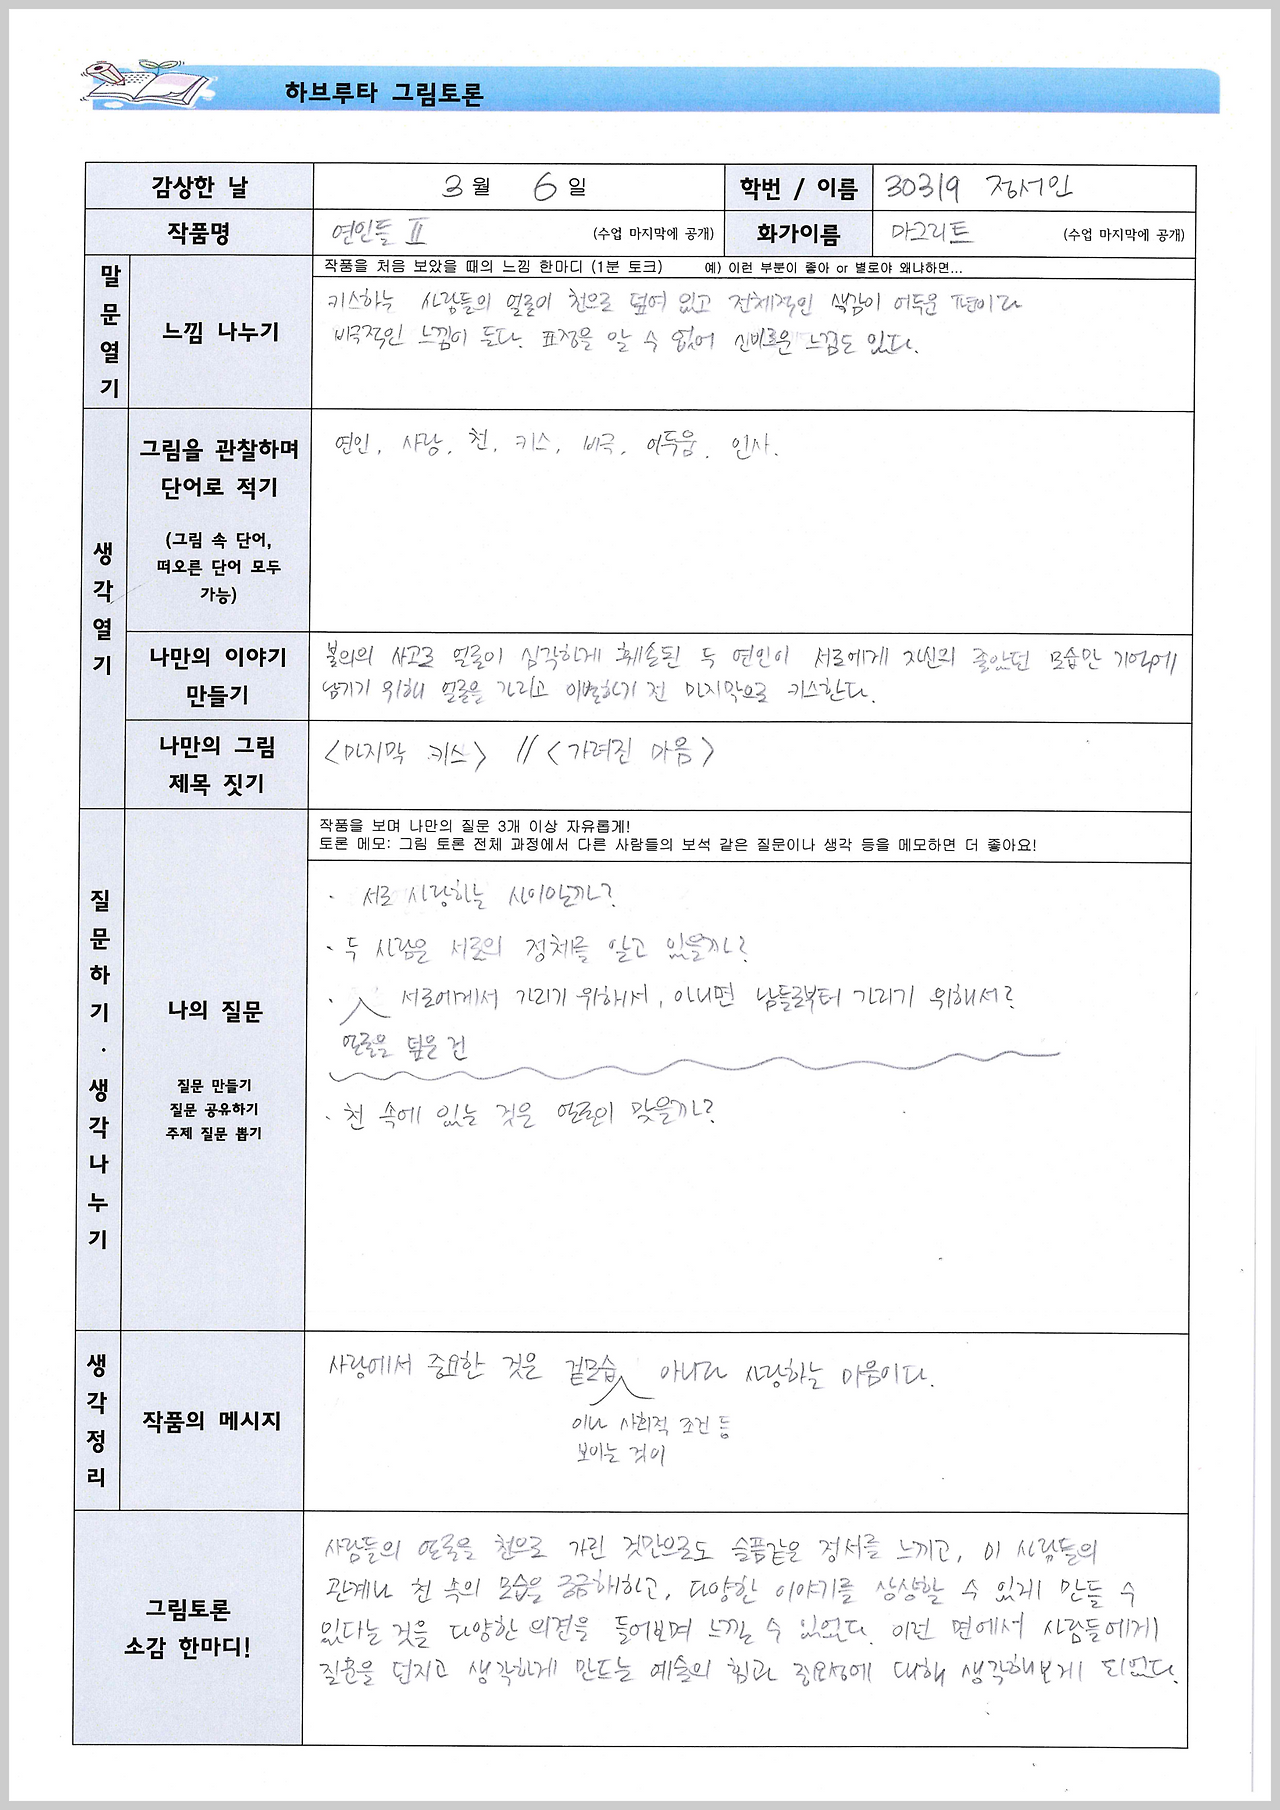 하브루타 그림토론
감상한 날 3 월 6 일 학번 / 이름 30319 정서인
작품명 연인들 Ⅱ (수업 마지막에 공개) 화가이름 마그리트 (수업 마지막에 공개)
말문열기
느낌 나누기
작품을 처음 보았을 때의 느낌 한마디 (1분 토크) 예) 이런 부분이 좋아 or 별로야 왜냐하면...
키스하는 사람들의 얼굴이 천으로 덮여 있고 전체적인 색감이 어두운 편이라
비극적인 느낌이 든다. 표정을 알 수 없어 신비로운 느낌도 있다.
생각열기
그림을 관찰하며
단어로 적기
(그림 속 단어,
떠오른 단어 모두
가능)
연인, 사랑, 천, 키스, 비극, 어두움, 인사.
나만의 이야기
만들기
불의의 사고로 얼굴이 심각하게 훼손된 두 연인이 서로에게 자신의 좋았던 모습만 기억에
남기기 위해 얼굴을 가리고 이별하기 전 마지막으로 키스한다.
나만의 그림
제목 짓기
<마지막 키스> // <가려진 마음>
질문하기 · 생각나누기
나의 질문
질문 만들기
질문 공유하기
주제 질문 뽑기
작품을 보며 나만의 질문 3개 이상 자유롭게!
토론 메모: 그림 토론 전체 과정에서 다른 사람들의 보석 같은 질문이나 생각 등을 메모하면 더 좋아요!
· 서로 사랑하는 사이일까?
· 두 사람은 서로의 정체를 알고 있을까?
· 서로에게서 가리기 위해서, 아니면 남들로부터 가리기 위해서?
얼굴을 덮은 건
· 천 속에 있는 것은 얼굴이 맞을까?
생각정리
작품의 메시지
사랑에서 중요한 것은 겉모습 아니라 사랑하는 마음이다.
이나 사회적 조건 등
보이는 것이
그림토론
소감 한마디!
사람들의 얼굴을 천으로 가린 것만으로도 슬픔같은 정서를 느끼고, 이 사람들의
관계나 천 속의 모습을 궁금해하고, 다양한 이야기를 상상할 수 있게 만들 수
있다는 것을 다양한 의견을 들어보며 느낄 수 있었다. 이런 면에서 사람들에게
질문을 던지고 생각하게 만드는 예술의 힘과 중요성에 대해 생각해보게 되었다.